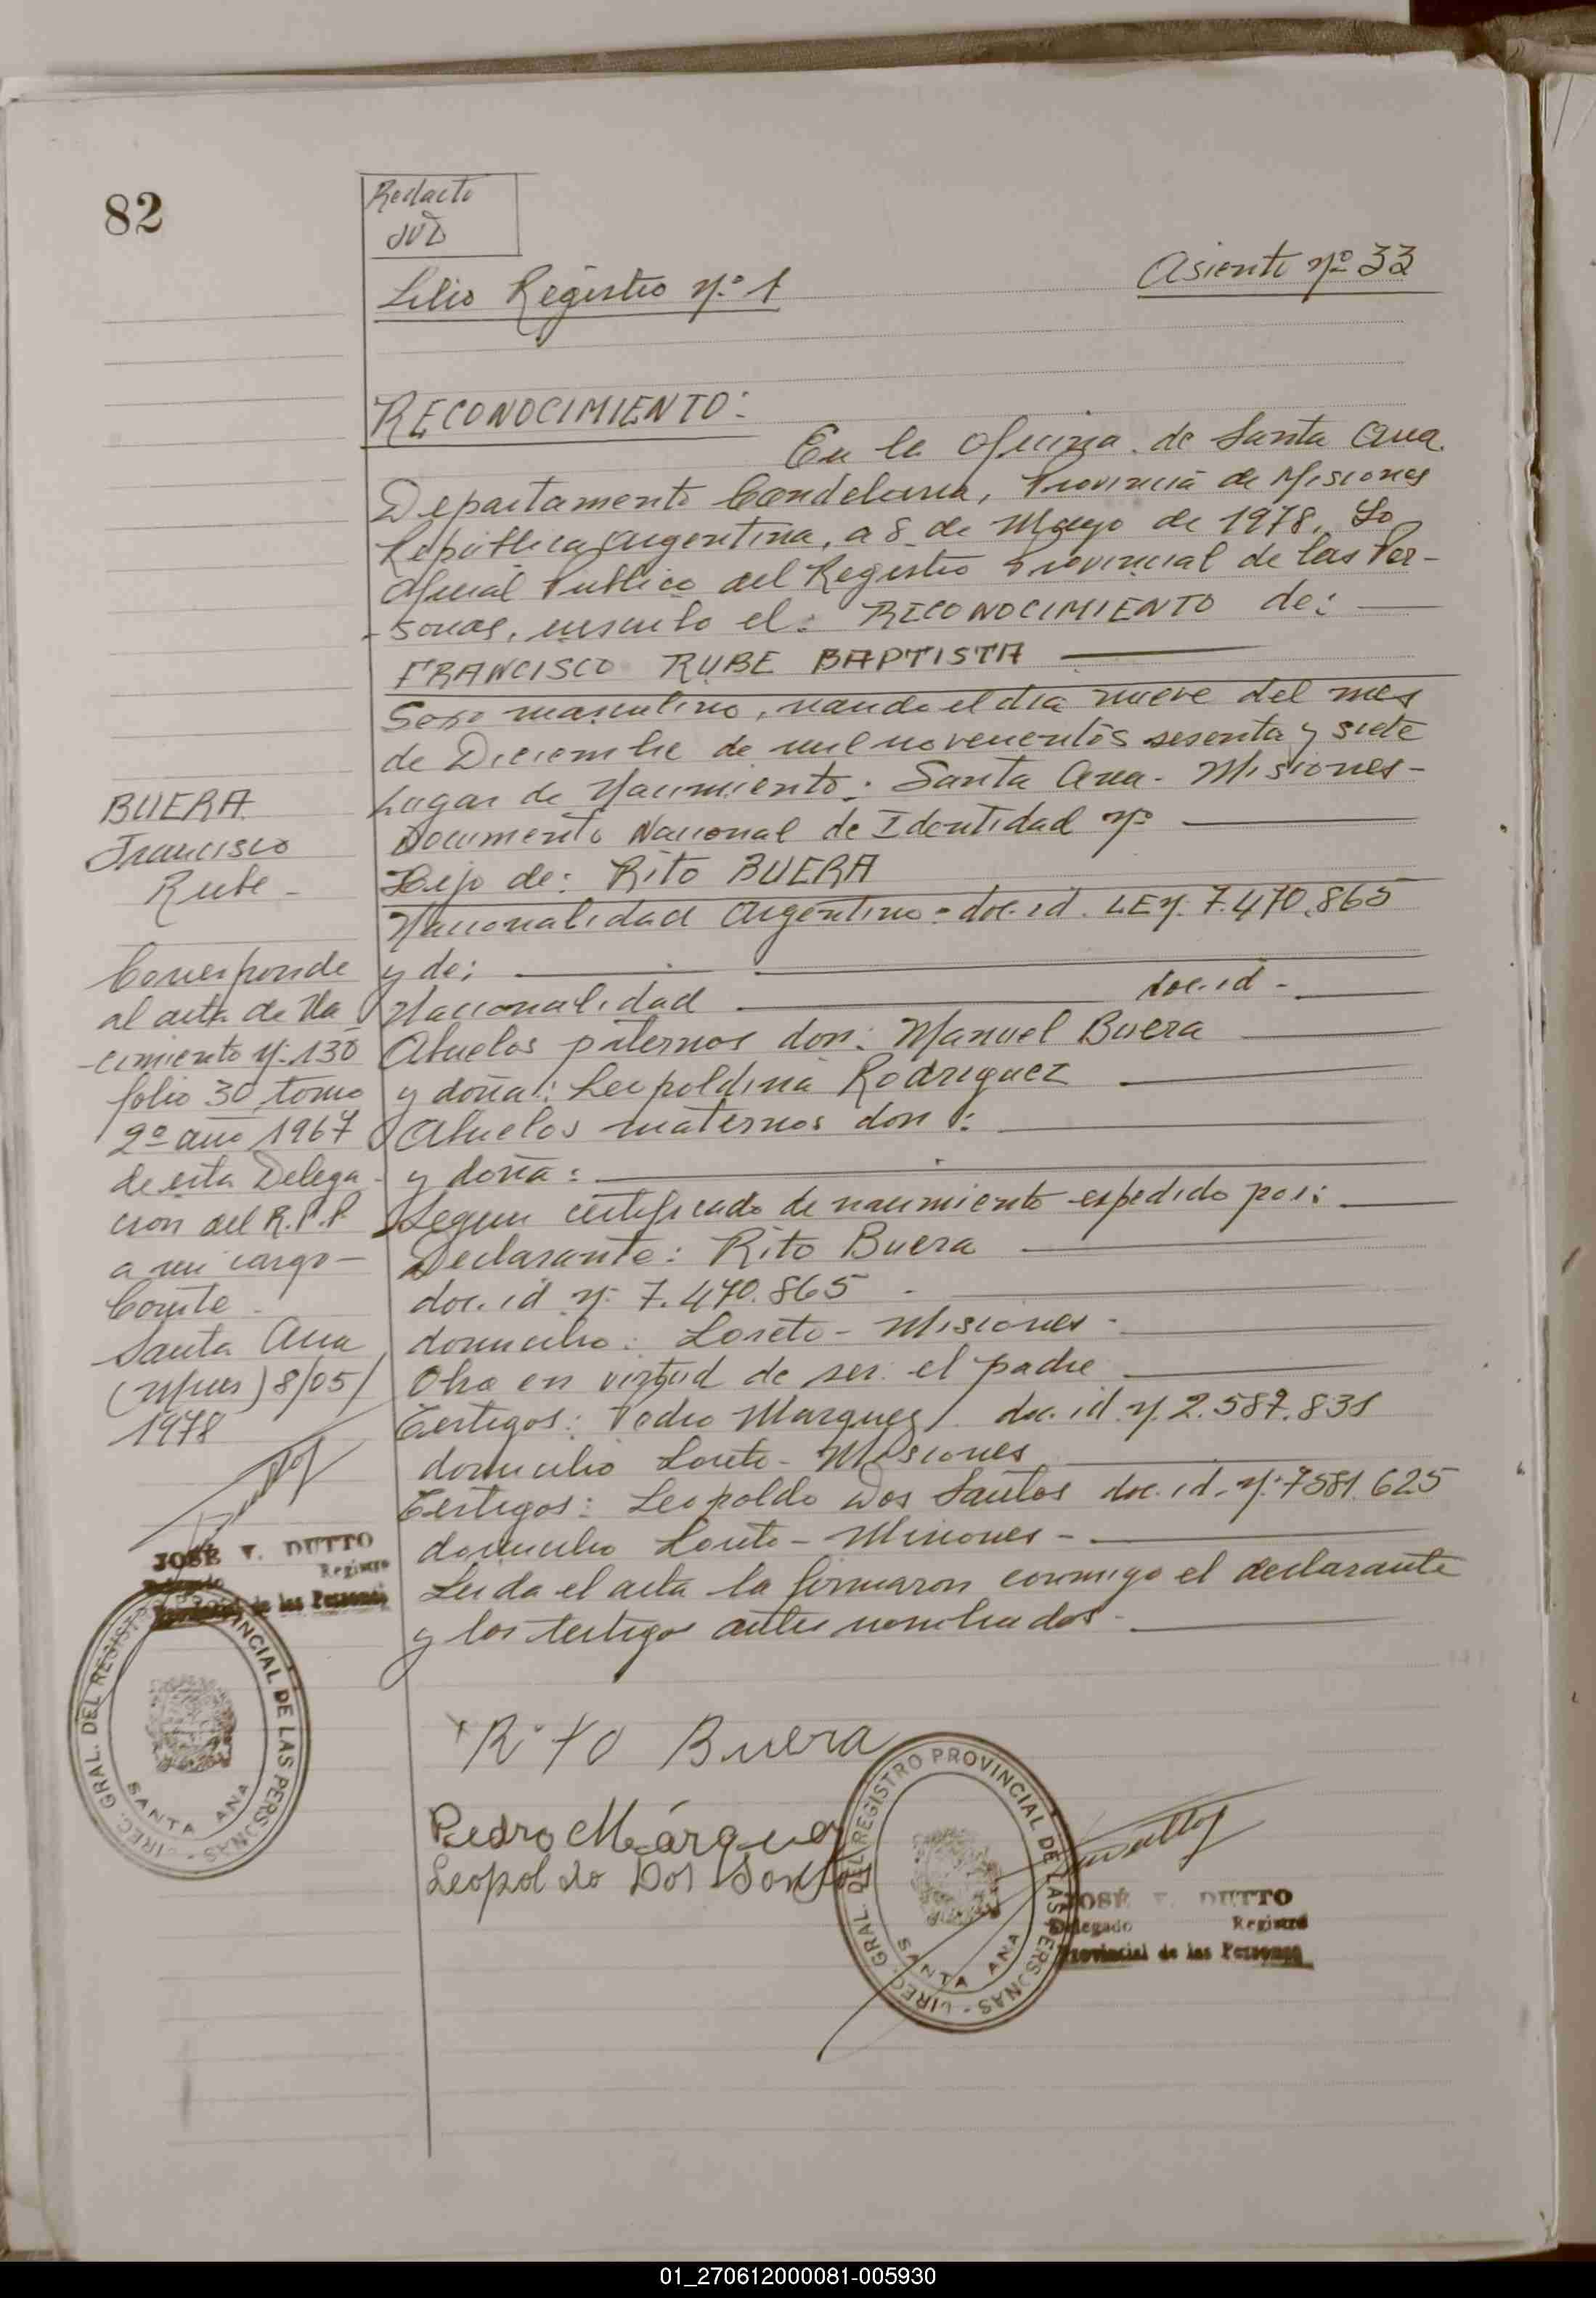 82
Redacto
JVD
Libro Registro nº 1
Asiento nº 33
RECONOCIMIENTO:
En la oficina de Santa Ana
Departamento Candelaria, Provincia de Misiones
República Argentina, a 8 de Mayo de 1978. Yo
Oficial Publico del Registro Provincial de las Per-
-sonas, inscribo el: RECONOCIMIENTO de:
FRANCISCO RUBE BAPTISTA
Sexo masculino, nacido el dia nueve del mes
de Diciembre de mil novecientos sesenta y siete
Lugar de Nacimiento: Santa Ana - Misiones -
Documento Nacional de Identidad nº
Hijo de: Rito BUERA
Nacionalidad Argentino - doc. id. LE nº 7.470.865
y de:
Nacionalidad doc. id -
Abuelos paternos don: Manuel Buera
y doña: Leopoldina Rodriguez
Abuelos maternos don:
y doña:
Segun certificado de nacimiento expedido por:
Declarante: Rito Buera
doc. id nº 7.470.865
domicilio: Loreto - Misiones -
Obra en virtud de ser: el padre
Testigos: Pedro Marquez doc. id. nº 2.587.831
domicilio Loreto - Misiones
Testigos: Leopoldo Dos Santos doc. id. nº 7581.625
domicilio Loreto - Misiones -
Leida el acta la firmaron conmigo el declarante
y los testigos antes nombrados -
BUERA
Francisco
Rube -
Corresponde
al acta de Na
-cimiento nº 130
folio 30 tomo
2º año 1967
de esta Delega-
cion del R.P.P.
a mi cargo -
Conste -
Santa Ana
(Mnes) 8/05/
1978
JOSE V. DUTTO
Delegado Registro
Provincial de las Personas
DIREC. GRAL. DEL REGISTRO PROVINCIAL DE LAS PERSONAS -
SANTA ANA
Rito Buera
Pedro Márquez
Leopoldo Dos Santos
DIREC. GRAL. DEL REGISTRO PROVINCIAL DE LAS PERSONAS -
SANTA ANA
JOSÉ V. DUTTO
Delegado Registro
Provincial de las Personas
01_270612000081-005930